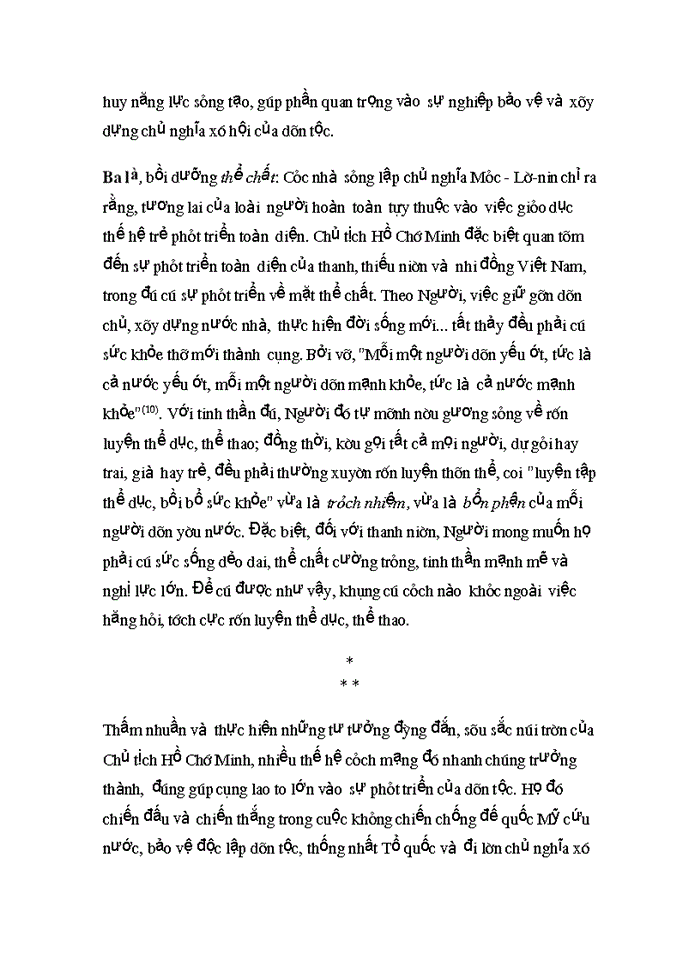 huy năng lực sỏng tạo, gúp phần quan trọng vào sự nghiệp bảo vệ và xõy
dựng chủ nghĩa xó hội của dõn tộc.
Ba là, bồi dưỡng thể chất: Cỏc nhà sỏng lập chủ nghĩa Mỏc - Lờ-nin chỉ ra
rằng, tương lai của loài người hoàn toàn tựy thuộc vào việc giỏo dục
thế hệ trẻ phỏt triển toàn diện. Chủ tịch Hồ Chớ Minh đặc biệt quan tõm
đến sự phỏt triển toàn diện của thanh, thiếu niờn và nhi đồng Việt Nam,
trong đú cú sự phỏt triển về mặt thể chất. Theo Người, việc giữ gỡn dõn
chủ, xõy dựng nước nhà, thực hiện đời sống mới... tất thảy đều phải cú
sức khỏe thỡ mới thành cụng. Bởi vỡ, "Mỗi một người dõn yếu ớt, tức là
cả nước yếu ớt, mỗi một người dõn mạnh khỏe, tức là cả nước mạnh
khỏe"(10). Với tinh thần đú, Người đó tự mỡnh nờu gương sỏng về rốn
luyện thể dục, thể thao; đồng thời, kờu gọi tất cả mọi người, dự gỏi hay
trai, già hay trẻ, đều phải thường xuyờn rốn luyện thõn thể, coi "luyện tập
thể dục, bồi bổ sức khỏe" vừa là trỏch nhiệm, vừa là bổn phận của mỗi
người dõn yờu nước. Đặc biệt, đối với thanh niờn, Người mong muốn họ
phải cú sức sống dẻo dai, thể chất cường trỏng, tinh thần mạnh mẽ và
nghị lực lớn. Để cú được như vậy, khụng cú cỏch nào khỏc ngoài việc
hăng hỏi, tớch cực rốn luyện thể dục, thể thao.
*
* *
Thấm nhuần và thực hiện những tư tưởng đỳng đắn, sõu sắc núi trờn của
Chủ tịch Hồ Chớ Minh, nhiều thế hệ cỏch mạng đó nhanh chúng trưởng
thành, đúng gúp cụng lao to lớn vào sự phỏt triển của dõn tộc. Họ đó
chiến đấu và chiến thắng trong cuộc khỏng chiến chống đế quốc Mỹ cứu
nước, bảo vệ độc lập dõn tộc, thống nhất Tổ quốc và đi lờn chủ nghĩa xó